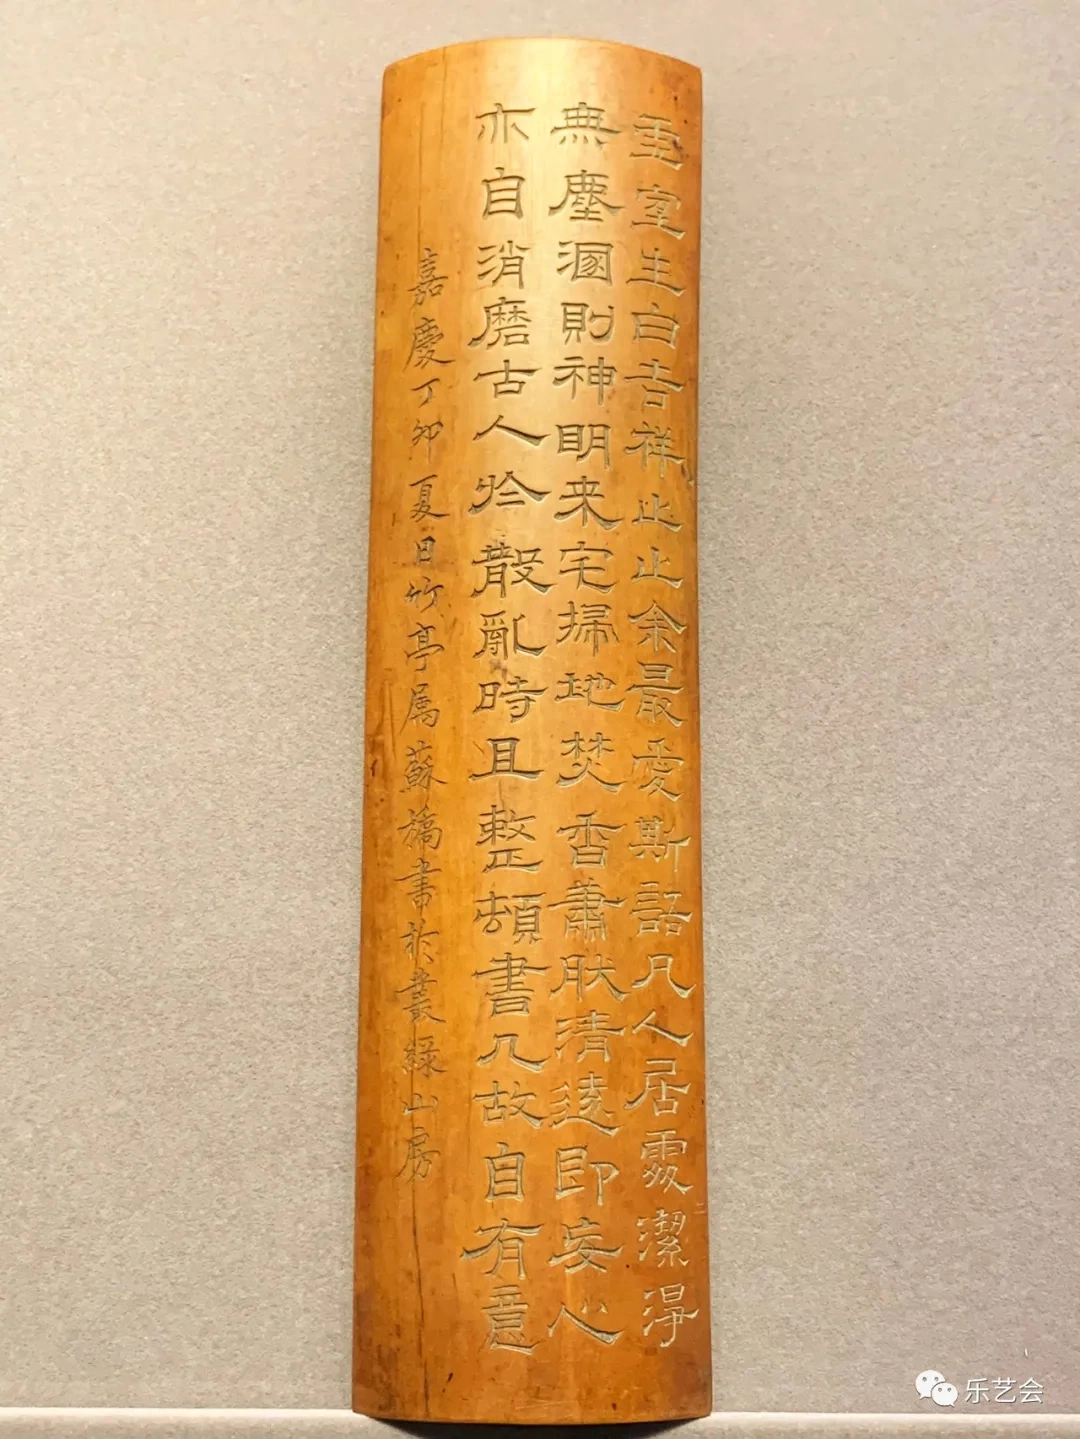 虛室生白吉祥止止余最愛斯語凡人居處潔淨
無塵溷則神明来宅掃地焚香蕭肰清遠即妄心
亦自消磨古人於散亂時且整頓書几故自有意
嘉慶丁卯夏日竹亭属蘇旛書於叢緑山房
乐艺会